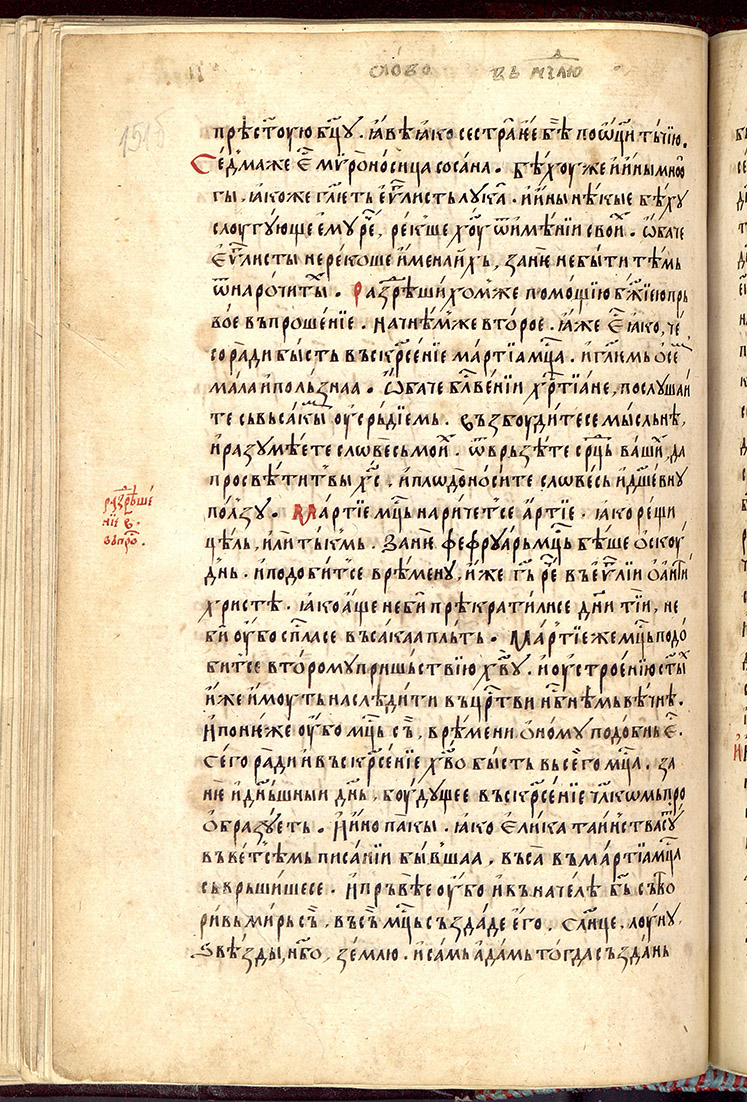 слово въ н҃елю
151б
прѣс҃тоую бц҃у. ꙗвѣ ꙗко сестраи́е бѣ́ по ѿц҃и тъ́чїю.
Се́дмаже е҆с̑ мѷроно́сица сосана. бѣ́хоу же и҆ и҆ны мно҆
гы. ꙗ҆коже гл҃еть еѵ҃листь лука̀. и҆ и҆ны нѣ́кые бѣ́ху
слоугꙋ́юще ѐмꙋ рѐ, ре́кше хоу̑ ѿ имѣ́нїи свои̑. ѡ҆баче
еѵ҃листы не реко́ше и҆мена и҆́хь, занѐ не бы́ти тѣ́мь
ѿ наро́читы̑. Разрѣши́хом́же помощїю бж҃їею прь
вое въпроше́нїе. начнѣ́мже второе. ꙗ҆́же е҆с̑ ꙗ҆ко, че́
со ра́ди бы́сть въскрⷭ҇е́нїе ма́ртїа мц҃а. и҆ гл҃ѥмь о҆ се
ма́ла и҆ по́льꙁнаа. Ѡ҆баче блв҃е́нїи хрⷭ҇тїа́не, послу́шаи
те сь вьса́кы̑ оу҆се́рдїемь. въꙁбоуди́тесе мы́сльнѣ,
и҆ раꙁумѣ́ете словесь мои̑. ѿврьꙁѣ́те срⷣца ва́ши, да
просвѣти́ть вы хс҃. и҆ плѡдоно́сите слове́сь и҆ дш҃е́вну
по́лꙁу. Ма́ртїе мц҃ь нарече́тсе а҆́ртїе. ꙗко рещи
цѣ́ль, и҆лѝ тъкъ́мь. Занѐ феѵруа́рь мц҃ь бѣ́ше о҆скоу
дн҃ь. и҆ подо́битсе врѣ́мену, и҆́же гь҃ рѐ въ еѵ҃лїи о҆ ан҆ти
христѣ. ꙗко а҆́ще не бы̀ прѣкрати́лисе дн҃и ті́и, не
бы̀ оу҆́бо сп҃ласе въса́каа пль́ть. Ма́ртїе же мц҃ь подо́
битсе второму прише́ствїю хв҃у. и҆ оу҆строе́нїю ст҃ы̑
и҆́же и҆́моуть наслѣ́дити въ црⷭ҇тви нб҃нѣмь вѣ́чнѣ.
И҆ поне́же оу҆́бо мц҃ь съ̀, врѣ́мени о҆́ному подо́бнь е҆с̑.
Сего́ ра́ди и҆ въскрⷭ҇е́нїе хв҃о бы́сть въ се́го мц҃а. за
нѐ и҆ дн҃ьшныи дн҃ь, боу́дущее въскрⷭ҇е́нїе чл҃кѡмь про
ѡбраꙁу́еть. И҆ и҆но па́кы. ꙗко е҆ли́ка та́инства су̑
въ ве́тсѣмь писа́нїи бы́вшаа, въса въ ма́ртїа мц҃а
сьврьши́шесе. И҆ прь́вѣе оу҆́бо и҆ въ наче́лѣ бь҃ сътво
ри́вь ми́рь съ̀, въ съ̀ мц҃ь съꙁда́де е҆го̀. Сл҃нце, лоу́ну
ѕвѣ́ꙁды, нб҃о, ꙁе́млю. и҆ самь а҆да́мь то́гда съꙁда́нь
разрѣше́
нїе в҃.
въпро̑.